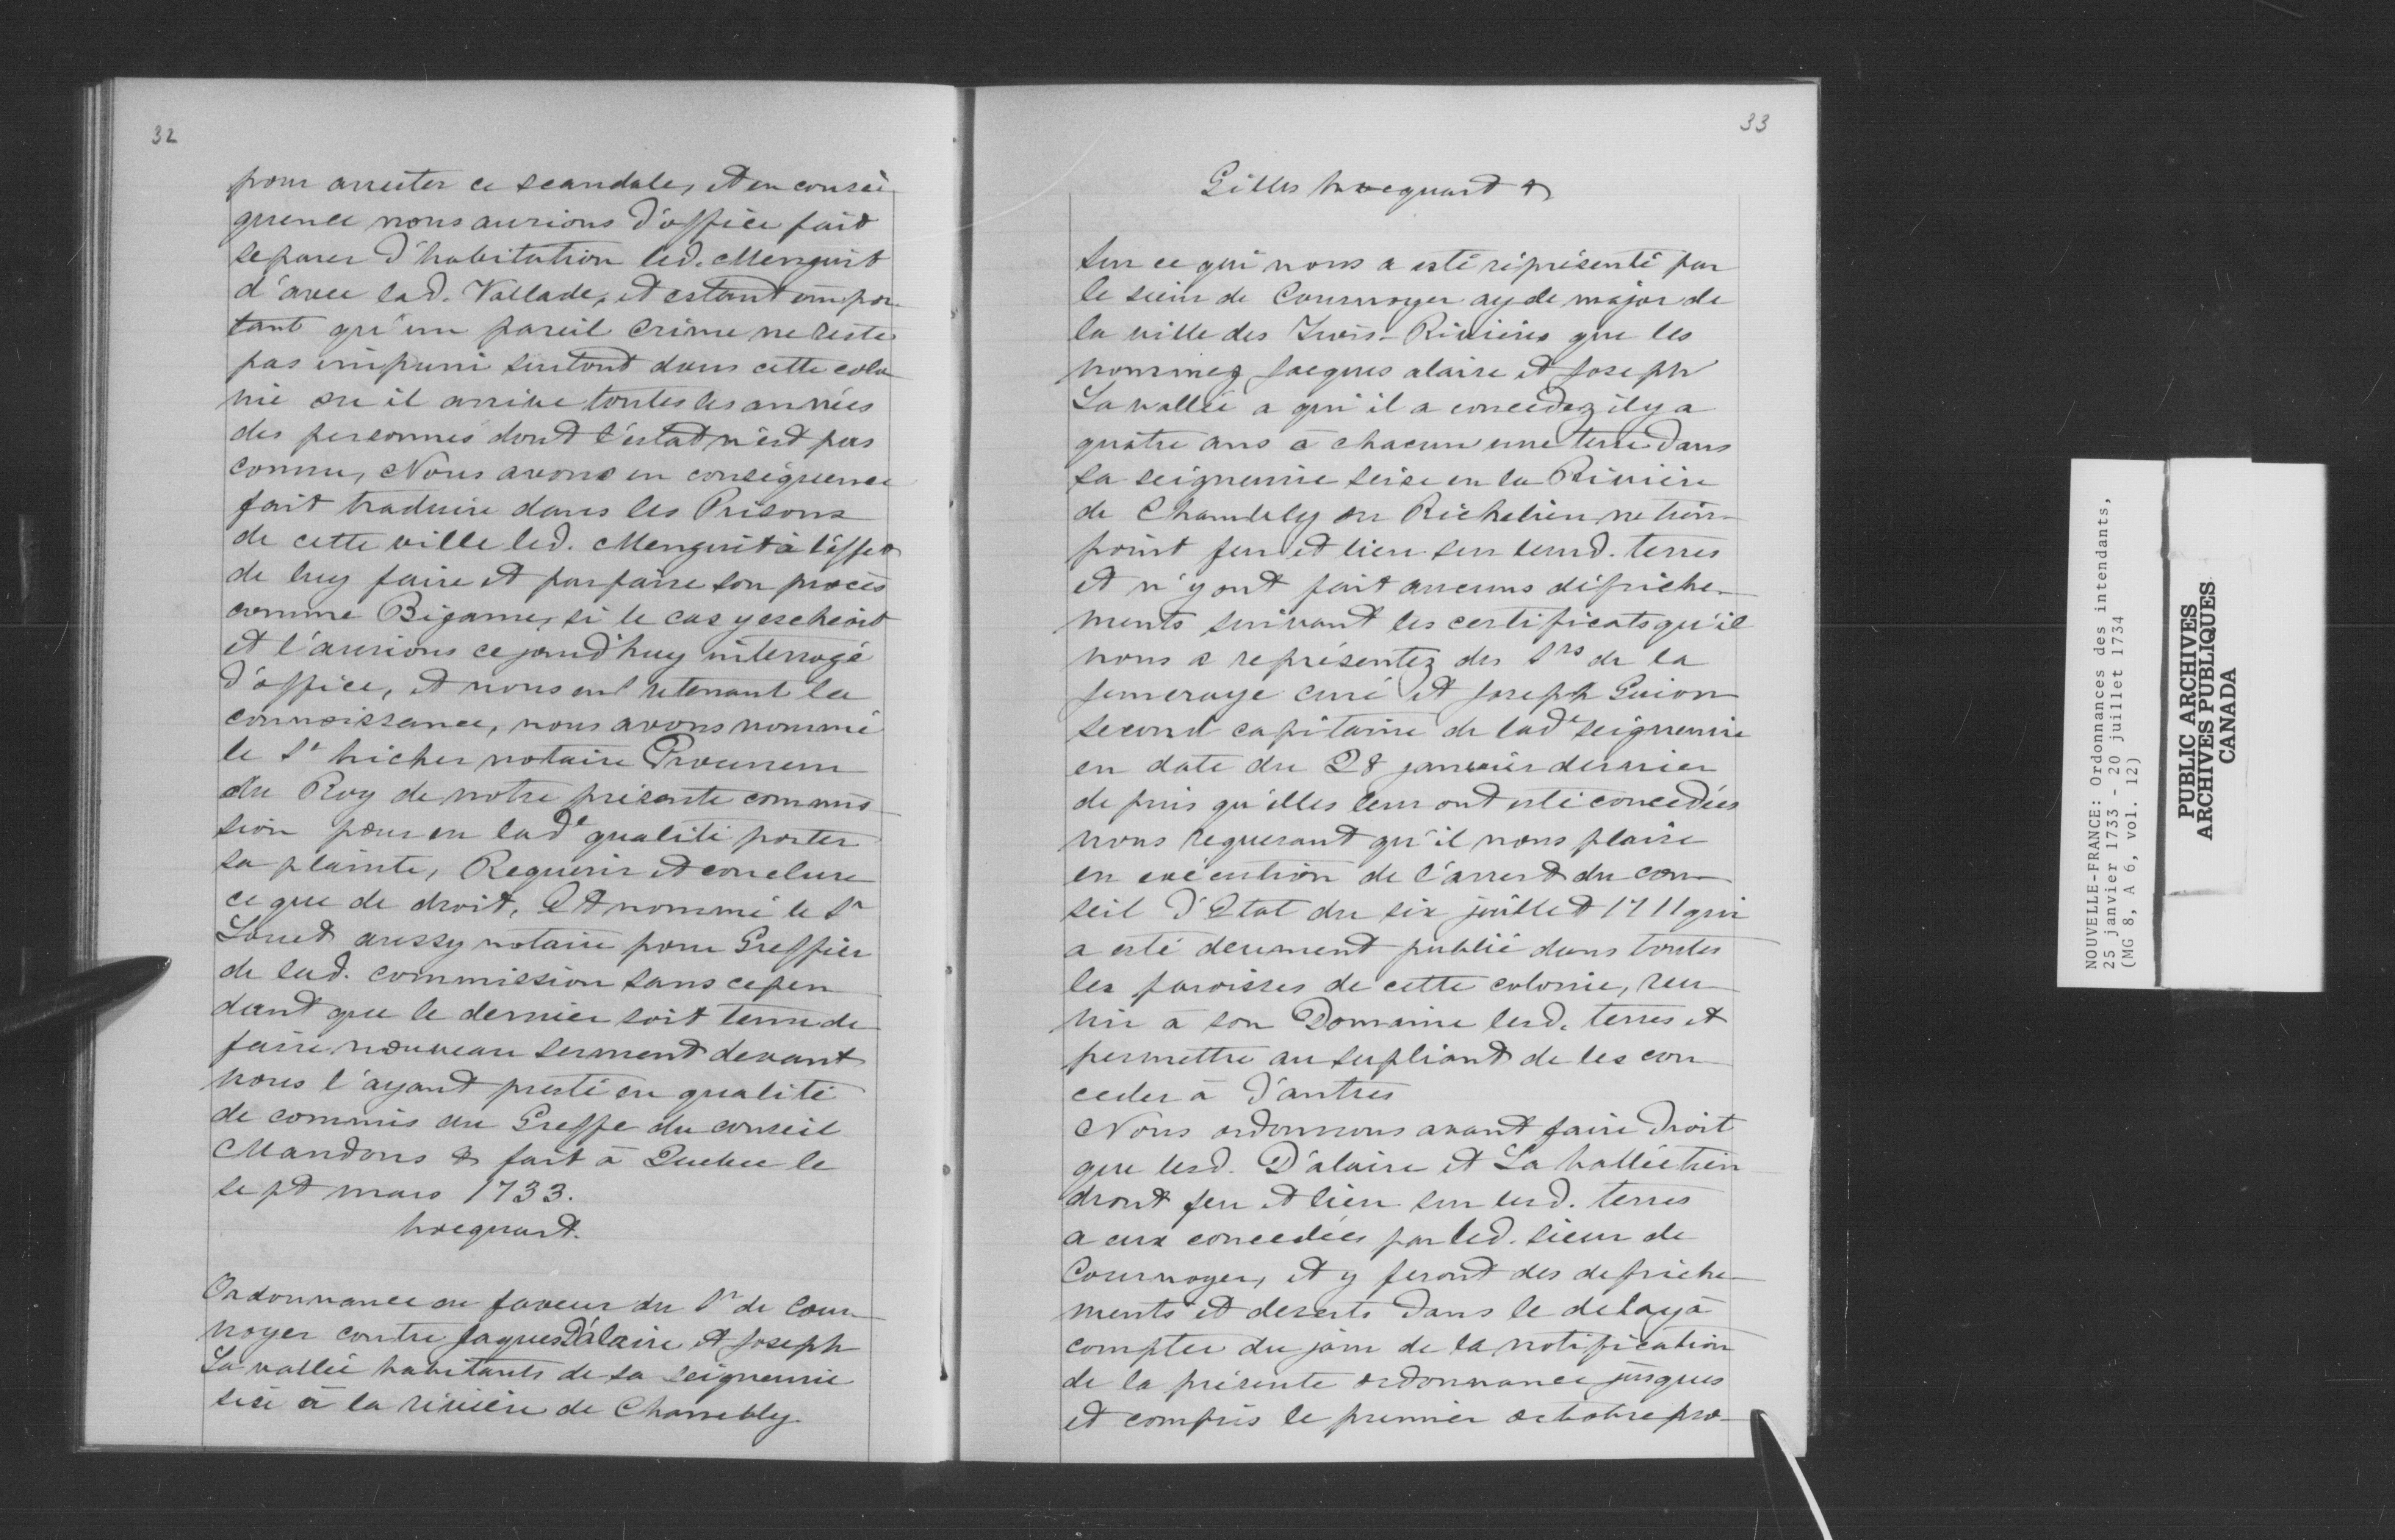 32
pour arrester ce scandale, et en consé-
quence nous aurions d'office fait
separer d'habitation led. Menguit
d'avec lad. Vallade, et estant impor-
tant qu'un pareil crime ne reste
pas impuni surtout dans cette colo-
nie ou il arrive toutes les années
des personnes dont l'estat n'est pas
connu, Nous avons en conséquence
fait traduire dans les Prisons
de cette ville led. Menguit à l'effet
de luy faire et parfaire son procès
comme Bigame, si le cas y escheoit
et l'aurions ce jourd'huy interrogé
d'office, et nous en retenant la
connoissance, nous avons nommé
le Sr hiché notaire Procureur
du Roy de notre présente commis-
sion pour en lade qualité porter
sa plainte, Requerir et conclure
ce que de droit, Et nommé le Sr
Louet aussy notaire pour Greffier
de lad. commission sans cepen-
dant que le dernier soit tenu de
faire nouveau serment devant
nous l'ayant presté en qualité
de commis au Greffe du conseil
Mandons & fait à Quebec le
sept mars 1733.
hocquart.
Ordonnance en faveur du Sr de Cour-
noyer contre Jaques Dalaire et Joseph
La vallée habitants de sa seigneurie
sise à la rivière de Chambly
33
Gilles hocquart &
Sur ce qui nous a esté réprésenté par
le sieur de Cournoyer ayde major de
la ville des Trois-Rivières que les
nommez Jacques alaire et Joseph
La vallée a qui il a concedez il y a
quatre ans à chacun une terre dans
sa seigneurie seise en la Rivière
de Chambly ou Richelieu ne tien-
point feu et lieu sur leurd. terres
et n'y ont fait aucuns défriche-
ments suivant les certificats qu'il
nous a représentez des Srs de la
Jemeraye curé et Joseph Guion
second capitaine de lade seigneurie
en date du 28 janvier dernier
depuis qu'elles leur ont esté concedées
nous requerant qu'il nous plaise
en exécution de l'arrest du con-
seil d'Etat du six juillet 1711 qui
a esté deument publié dans toutes
les paroisses de cette colonie, reu-
nir à son Domaine lesd. terres et
permettre au supliant de les con-
ceder à d'autres
Nous ordonnons avant faire droit
que lesd. D'alaire et La vallée tien-
dront feu et lieu sur lesd. terres
a eux concedées par led. sieur de
Cournoyer, et y feront des defriche-
ments et deserts dans le delay à
compter du jour de la notification
de la présente ordonnance jusques
et compris le premier octobre pro-
NOUVELLE-FRANCE: Ordonnances des intendants,
25 janvier 1733 - 20 juillet 1734
(MG 8, A 6, vol. 12)
PUBLIC ARCHIVES
ARCHIVES PUBLIQUES
CANADA